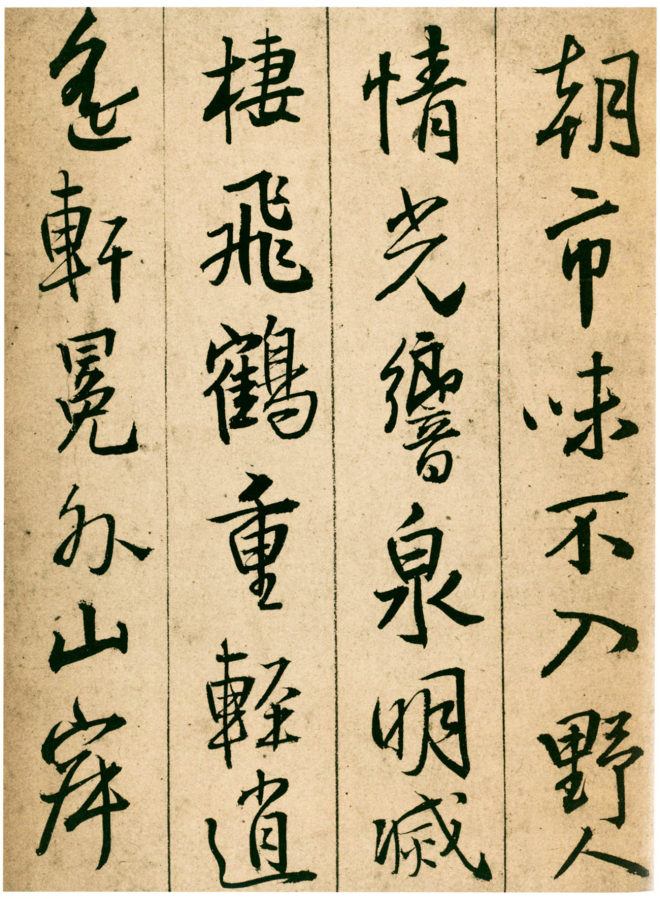 朝市味不入野人
情光響泉明滅
棲飛鶴重輕逍
遙軒冕外山岸